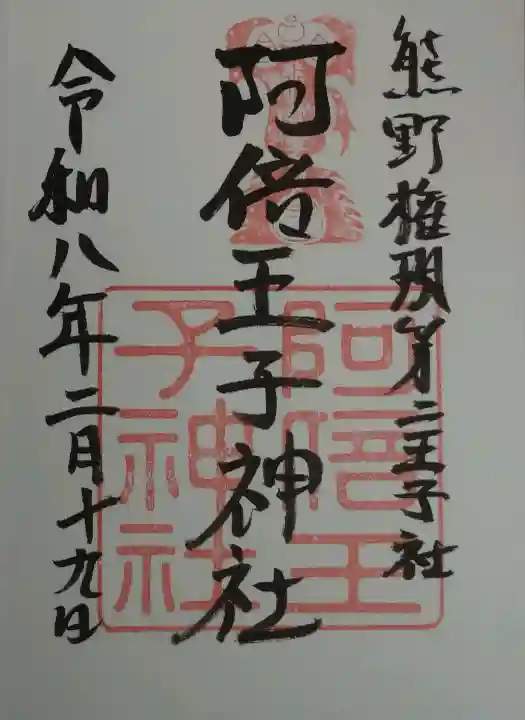 熊野権現第二王子社
阿倍王子神社
令和八年二月十九日
阿倍王
子神社